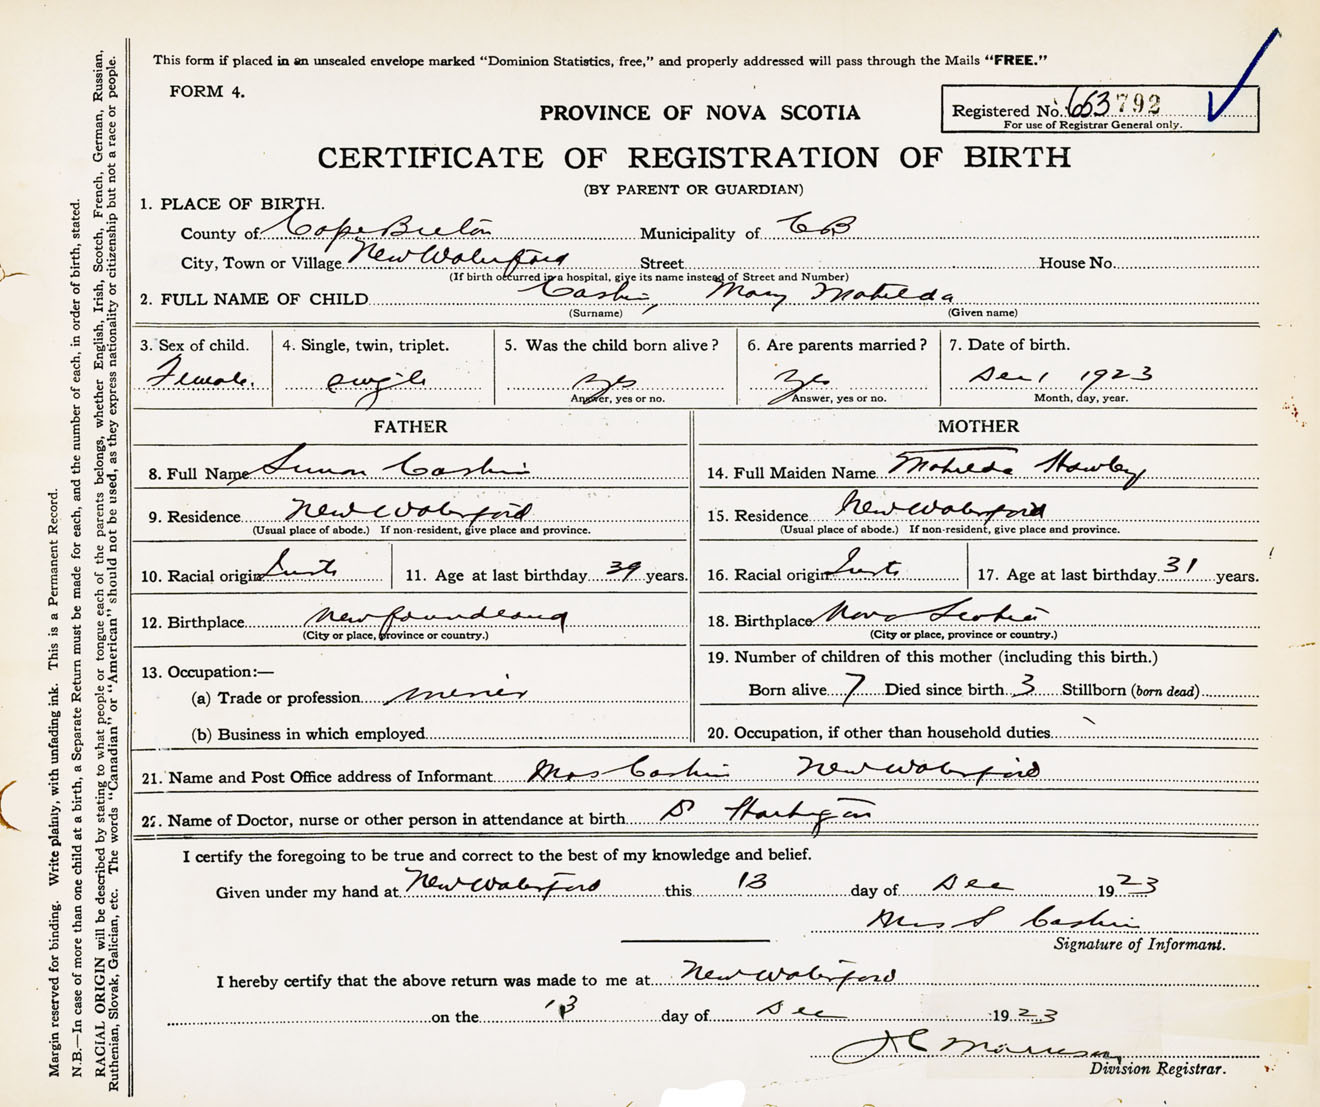 This form if placed in an unsealed envelope marked “Dominion Statistics, free,” and properly addressed will pass through the Mails “FREE.”
FORM 4.
Registered No. 653792
For use of Registrar General only.
PROVINCE OF NOVA SCOTIA
CERTIFICATE OF REGISTRATION OF BIRTH
(BY PARENT OR GUARDIAN)
1. PLACE OF BIRTH.
County of Cape Breton Municipality of C B
City, Town or Village New Waterford Street House No.
(If birth occurred in a hospital, give its name instead of Street and Number)
2. FULL NAME OF CHILD Cashin, Mary Matilda
(Surname) (Given name)
3. Sex of child. 4. Single, twin, triplet. 5. Was the child born alive? 6. Are parents married? 7. Date of birth.
Female. single yes yes Dec 1 1923
Answer, yes or no. Answer, yes or no. Month, day, year.
FATHER MOTHER
8. Full Name Simon Cashin 14. Full Maiden Name Matilda Hawley
9. Residence New Waterford 15. Residence New Waterford
(Usual place of abode.) If non-resident, give place and province. (Usual place of abode.) If non-resident, give place and province.
10. Racial origin 11. Age at last birthday 39 years. 16. Racial origin 17. Age at last birthday 31 years.
12. Birthplace Newfoundland 18. Birthplace Nova Scotia
(City or place, province or country.) (City or place, province or country.)
13. Occupation:— 19. Number of children of this mother (including this birth.)
(a) Trade or profession minier Born alive 7 Died since birth 3 Stillborn (born dead)
(b) Business in which employed 20. Occupation, if other than household duties
21. Name and Post Office address of Informant Mrs Cashin New Waterford
22. Name of Doctor, nurse or other person in attendance at birth D Hartigan
I certify the foregoing to be true and correct to the best of my knowledge and belief.
Given under my hand at New Waterford this 13 day of Dec 1923
Mrs S Cashin
Signature of Informant.
I hereby certify that the above return was made to me at New Waterford
on the 13 day of Dec 1923
J C Morrison
Division Registrar.
Margin reserved for binding. Write plainly, with unfading ink. This is a Permanent Record.
N.B.—In case of more than one child at a birth, a Separate Return must be made for each, and the number of each, in order of birth, stated.
RACIAL ORIGIN will be described by stating to what people or tongue each of the parents belongs, whether English, Irish, Scotch, French, German, Russian,
Ruthenian, Slovak, Galician, etc. The words “Canadian” or “American” should not be used, as they express nationality or citizenship but not a race or people.